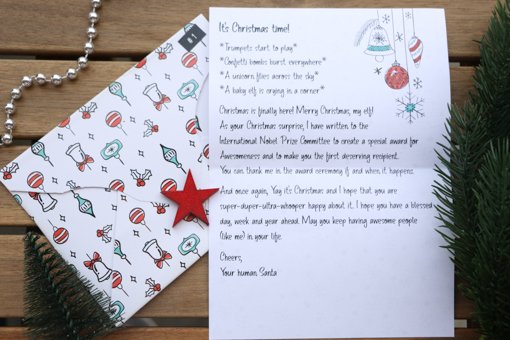 #1
It's Christmas time!
*Trumpets start to play*
*Confetti bombs burst everywhere*
*A unicorn flies across the sky*
*A baby elf is crying in a corner*
Christmas is finally here! Merry Christmas, my elf!
As your Christmas surprise, I have written to the
International Nobel Prize Committee to create a special award for
Awesomeness and to make you the first deserving recipient.
You can thank me in the award ceremony if and when it happens.
And once again, Yay it's Christmas and I hope that you are
super-duper-ultra-whooper happy about it. I hope you have a blessed
day, week and year ahead. May you keep having awesome people
(like me) in your life.
Cheers,
Your human Santa